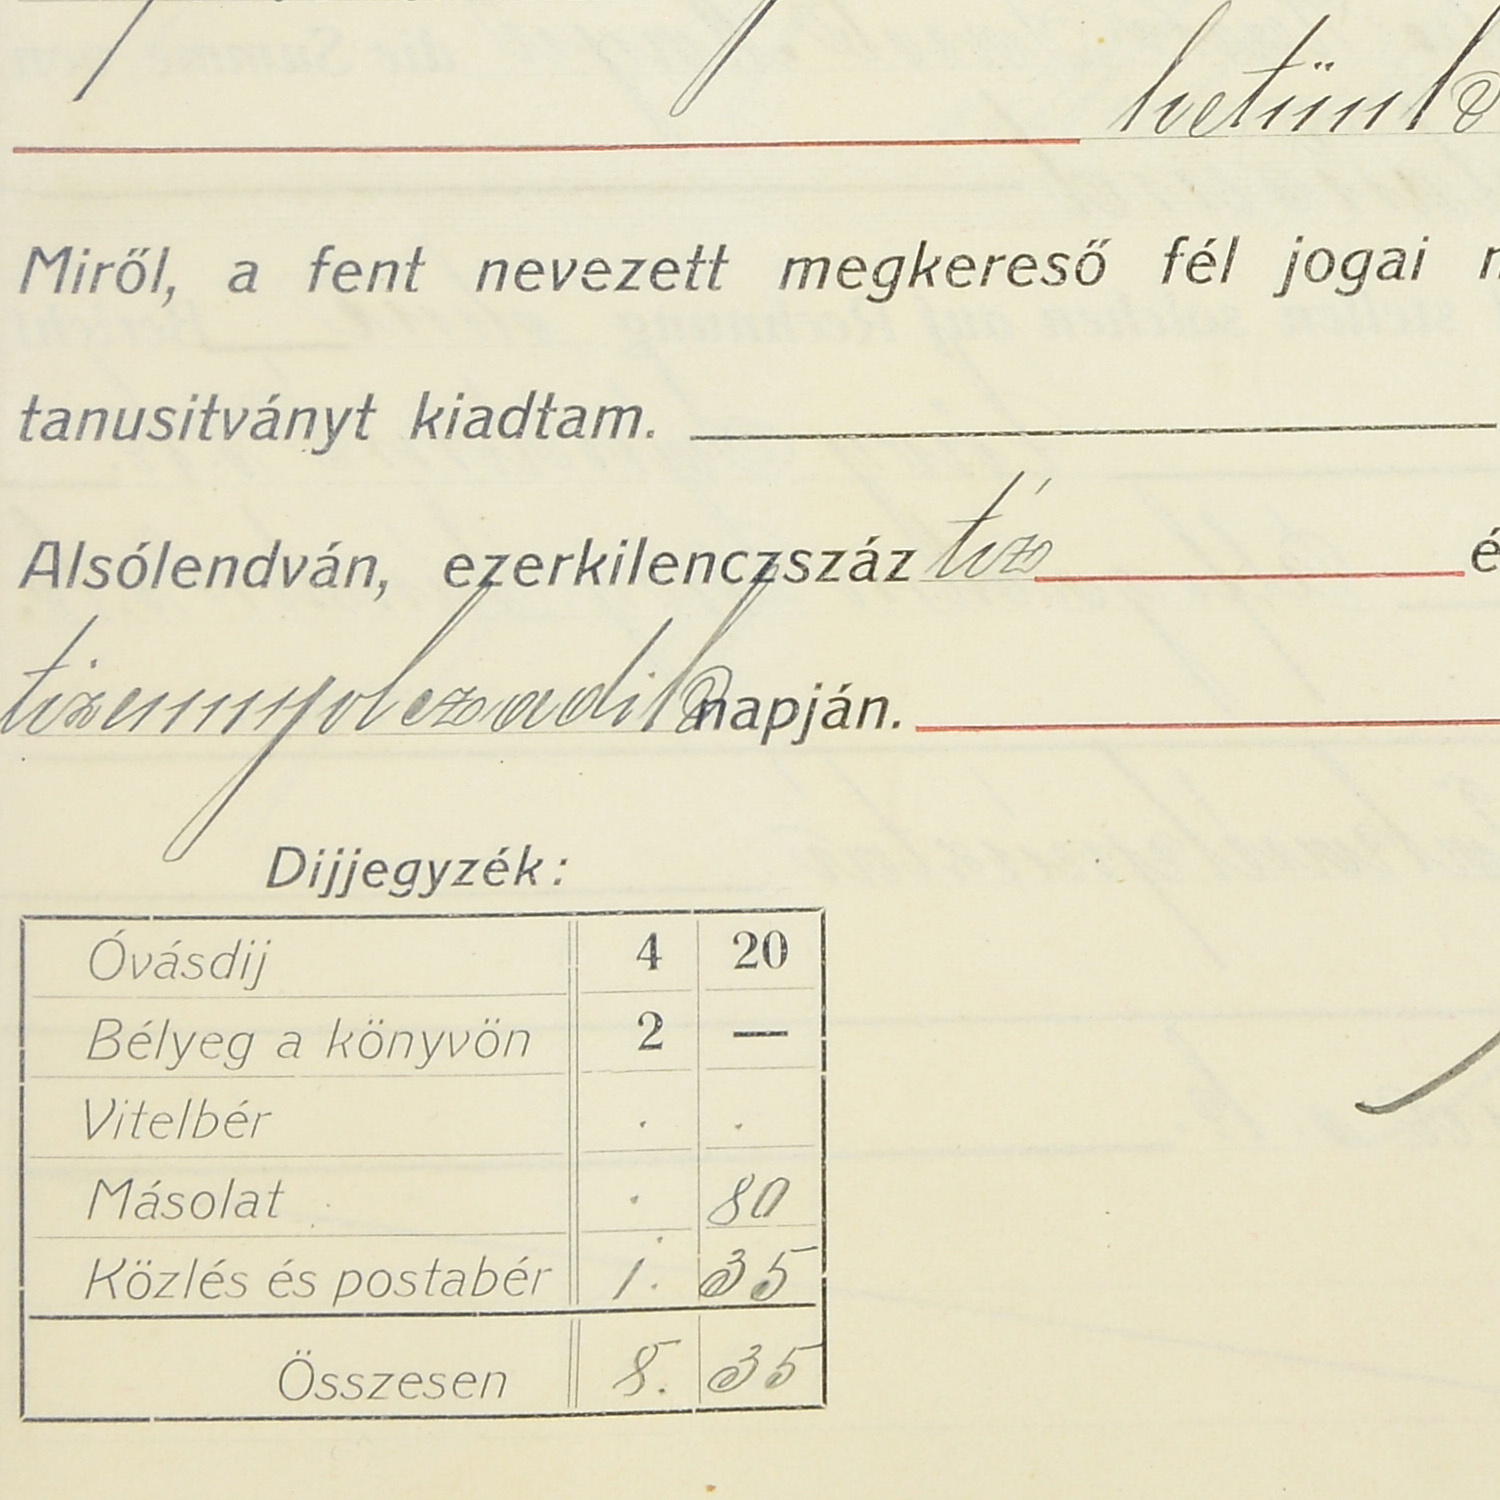 hetünk
Miről, a fent nevezett megkereső fél jogai
tanusitványt kiadtam.
Alsólendván, ezerkilenczszáz tíz é
tizennyolczadik napján.
Dijjegyzék:
Óvásdij 4 20
Bélyeg a könyvön 2 —
Vitelbér . .
Másolat . 80
Közlés és postabér 1. 35
Összesen 8. 35